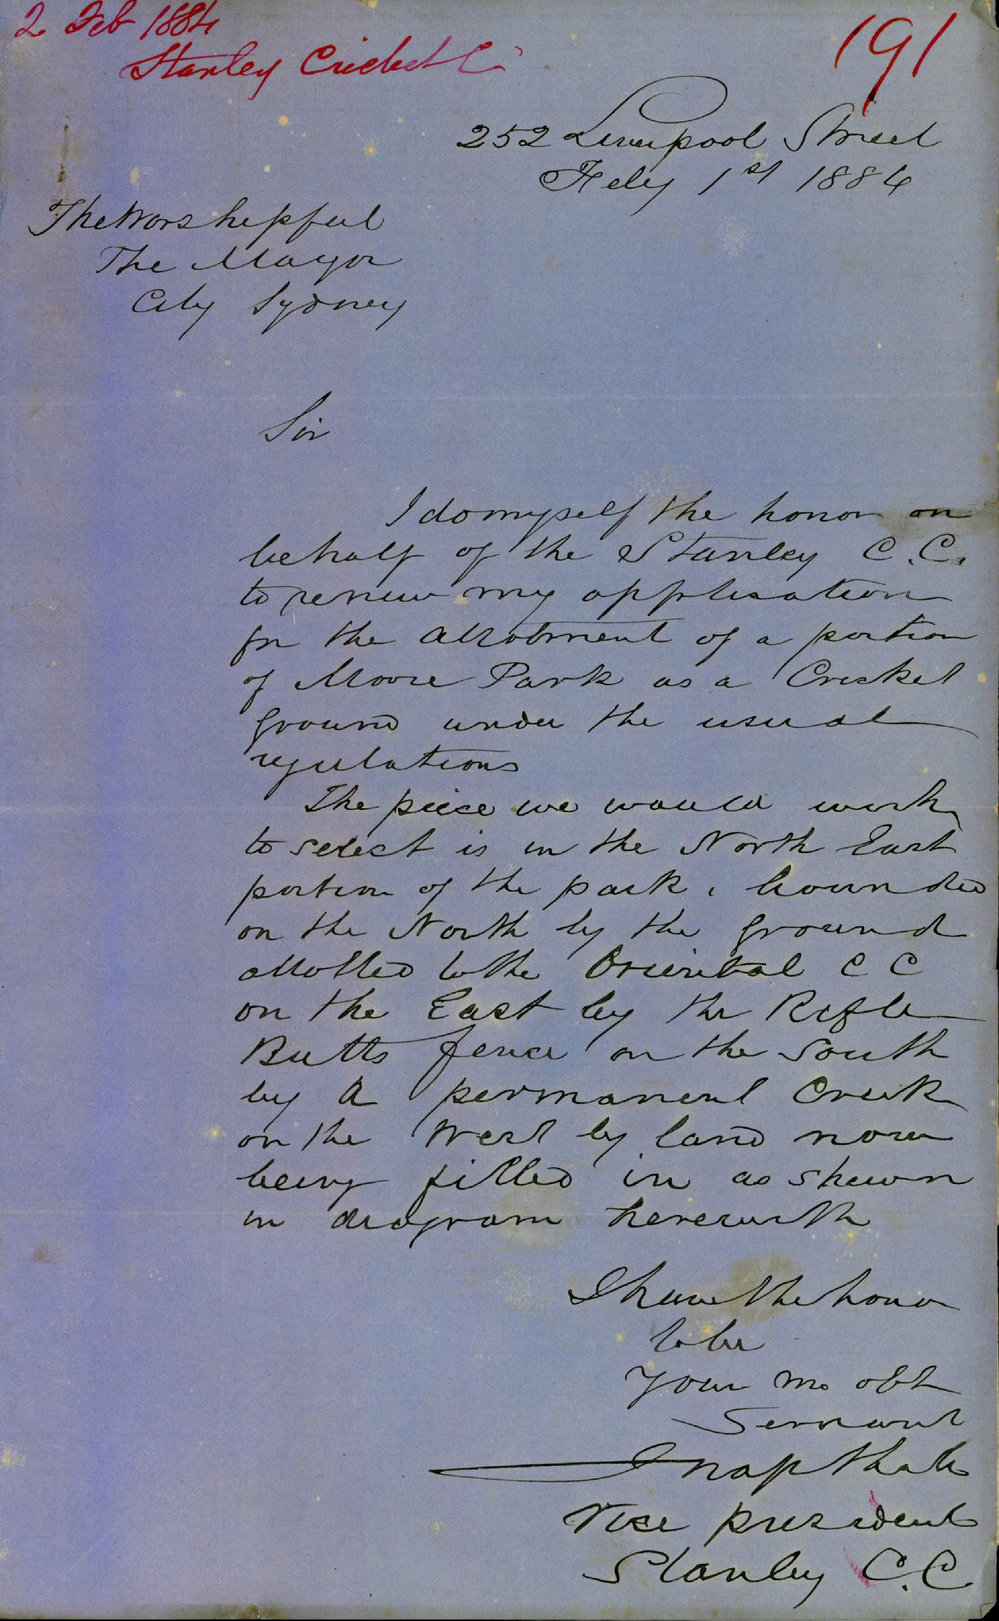 2 Feb 1884
Stanley Cricket C
191
252 Liverpool Street
Feby 1st 1884
The Worshipful
The Mayor
City Sydney
Sir
I do myself the honor on
behalf of the Stanley C.C.
to renew my application
for the allotment of a portion
of Moore Park as a Cricket
ground under the usual
regulations
The piece we would wish
to select is in the North East
portion of the park, bounded
on the North by the ground
allotted to the Oriental C C
on the East by the Rifle
Butts fence on the South
by a permanent Creek
on the West by land now
being filled in as shewn
in diagram herewith
I have the honor
to be
Your mo obt
Servant
Vice president
Stanley C.C